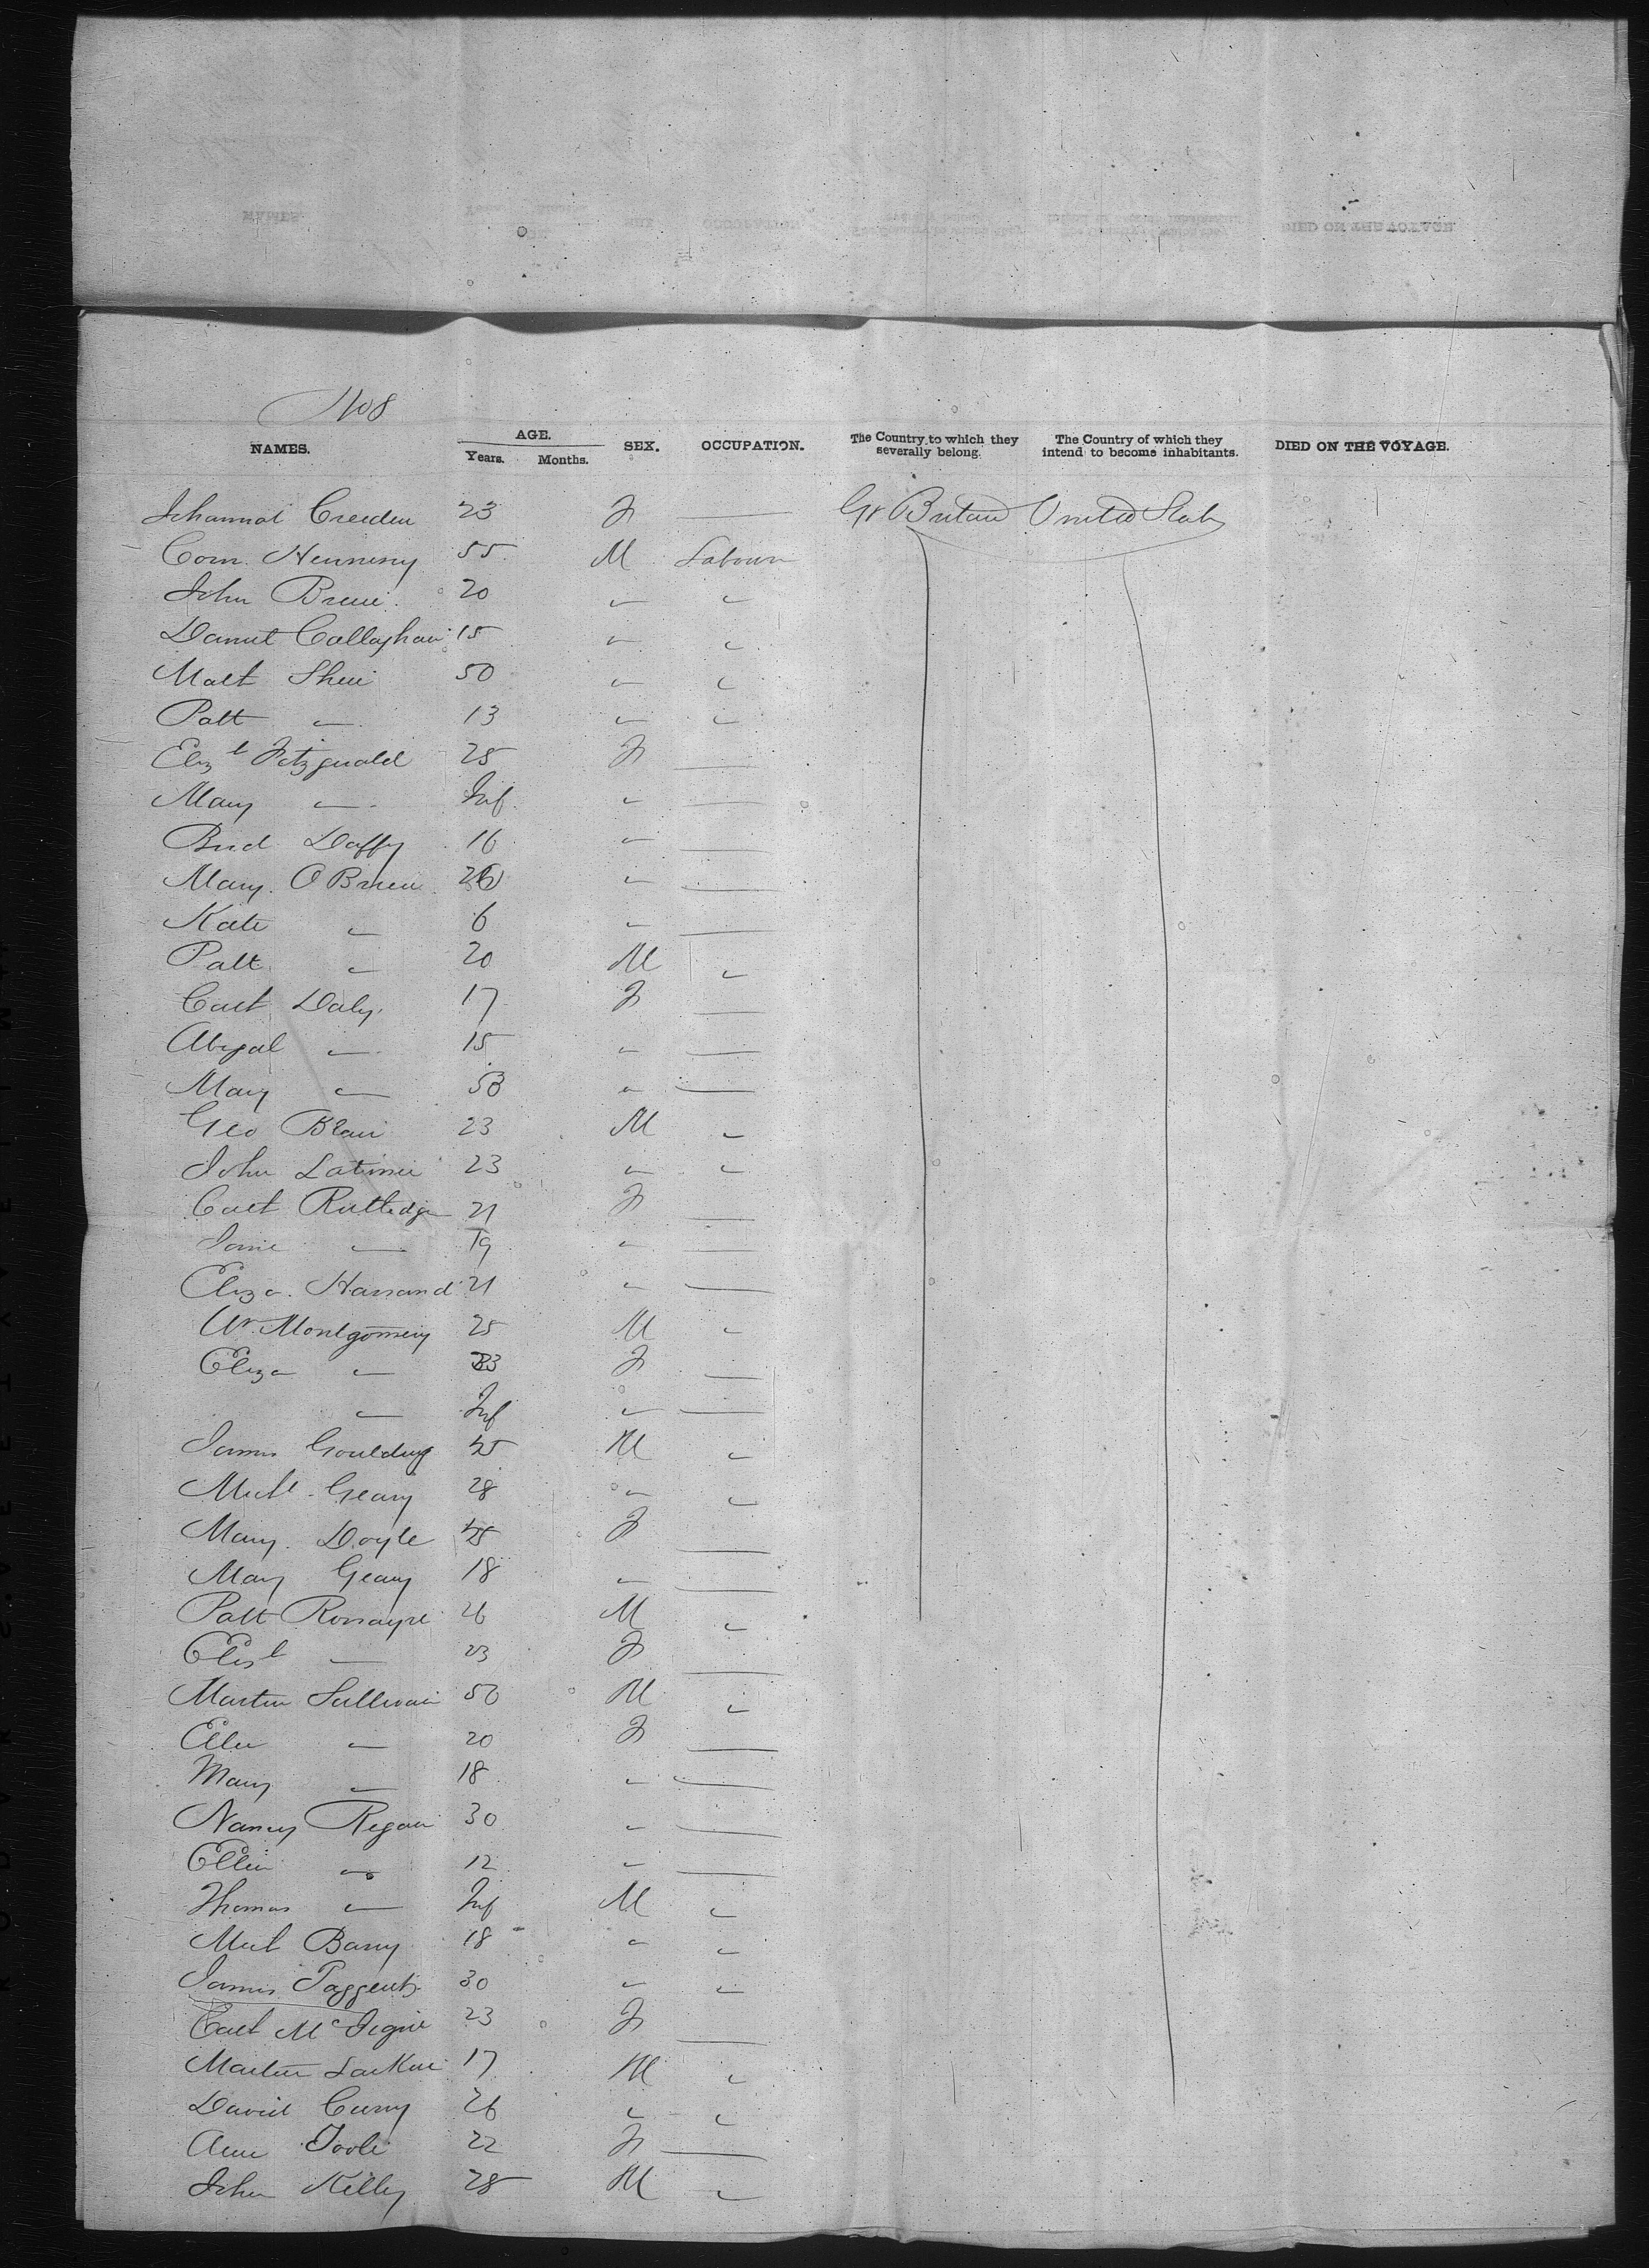 1108
NAMES. AGE. Years. Months. SEX. OCCUPATION. The Country to which they severally belong. The Country of which they intend to become inhabitants. DIED ON THE VOYAGE.
Johannah Creeden 23 F — Gr Britain United States
Corn. Hennessy 55 M Labourer
John Breen 20 " "
Daniel Callaghan 15 " "
Matt Shea 50 " "
Patt " 13 " "
Elizt Fitzgerald 25 F —
Mary " Inf. " —
Brid Daffy 16 " —
Mary O Brien 26 " —
Kate " 6 " —
Patt " 20 M "
Cath Daly 17 F —
Abigal " 15 " —
Mary " 53 " —
Geo Blair 23 M "
John Latimer 23 " "
Cath Rutledge 21 F —
Jane " 19 " —
Eliza Hassard 21 " —
Wm Montgomery 25 M "
Eliza " 23 F —
" Inf " —
James Goulding 45 M "
Michl Geary 28 " "
Mary Doyle 45 F —
Mary Geary 18 " —
Patt Ronayne 26 M "
Elist " 23 F —
Martin Sullivan 50 M "
Ellen " 20 F —
Mary " 18 " —
Nancy Regan 30 " —
Ellen " 12 " —
Thomas " Inf M "
Mich Barry 18 " "
James 30 " "
Cath 23 F —
Martin Larkin 17 M "
David Curry 26 " "
Ann Toole 22 F —
John Kelly 28 M "